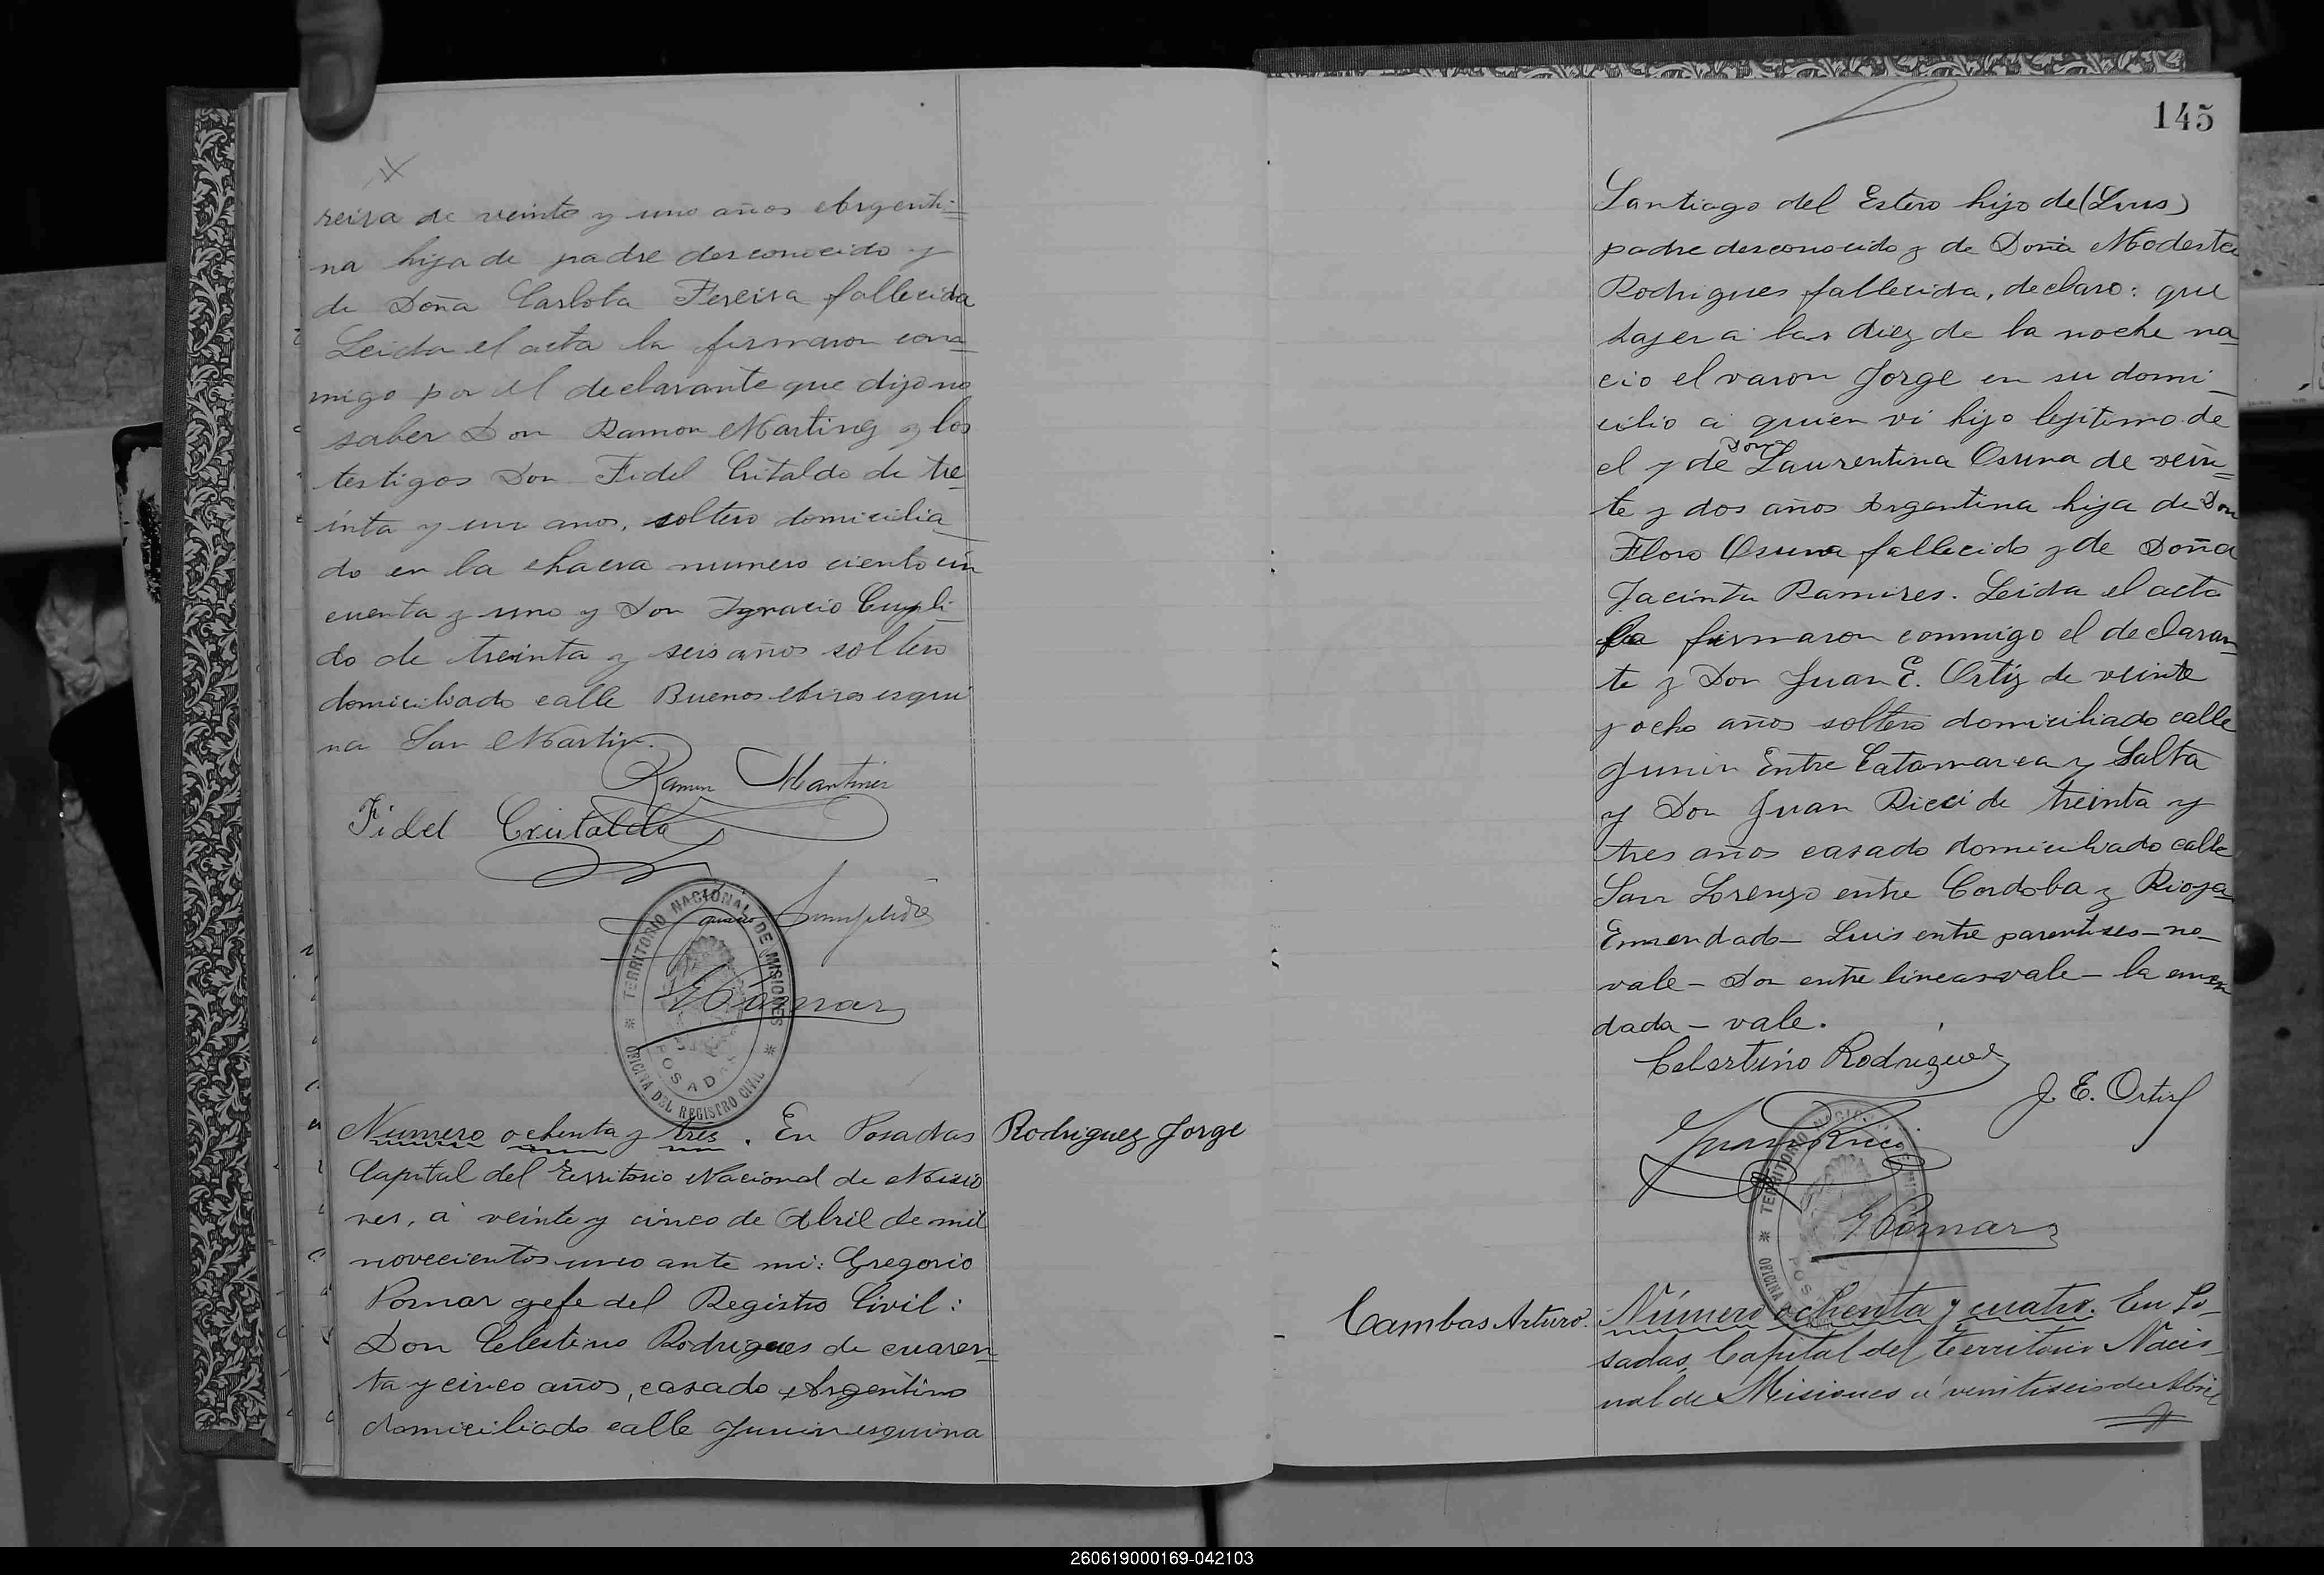 reira de veinte y uno años Argenti=
na hija de padre desconocido y
de Doña Carlota Fereira fallecida
Leida el acta la firmaron con=
migo por el declarante que dijo no
saber Don Ramon Martinez y los
testigos Don Fidel Cristaldo de tre=
inta y un anos, soltero domicilia
do en la chacra numero ciento cin
cuenta y uno y Don Ignacio Cumpli-
do de treinta y seis años soltero
domiciliado calle Buenos Aires esqui
na San Martin.
Ramon Martinez
Fidel Cristaldo
Ignacio Cumplido
TERRITORIO NACIONAL DE MISIONES
G Pomar
POSADAS
OFICINA DEL REGISTRO CIVIL
Numero ochenta y tres. En Posadas
Rodriguez Jorge
Capital del Territorio Nacional de Misio
nes, á veinte y cinco de Abril de mil
novecientos uno ante mi: Gregorio
Pomar gefe del Registro Civil:
Don Celestino Rodrigues de cuaren=
ta y cinco años, casado Argentino
domiciliado calle Junin esquina
145
Santiago del Estero hijo de (Luis)
padre desconocido y de Doña Modesta
Rodrigues fallecida, declaro: que
hayer a las diez de la noche na=
cio el varon Jorge en su domi-
cilio a quien vi hijo lejitimo de
el y de Don Laurentina Osuna de vein=
te y dos años Argentina hija de Don
Floro Osuna fallecido y de Doña
Jacinta Ramires. Leida el acta
la firmaron conmigo el declaran=
te y Don Juan E. Ortiz de veinte
y ocho años soltero domiciliado calle
Junin Entre Catamarca y Salta
y Don Juan Ricci de treinta y
tres años casado domiciliado calle
San Lorenzo entre Cordoba y Rioja=
Enmendado— Luis entre parentises—no—
vale— Don entre lineas vale— la enmen
dada— vale.
Celestino Rodriguez
J. E. Ortiz
Juan Ricci
TERRITORIO NACION
G Pomar
OFICINA
POS
Cambas Arturo.
Número ochenta y cuatro. En Po-
sadas, Capital del Territorio Nacio-
nal de Misiones á veintiseis de Abril
260619000169-042103